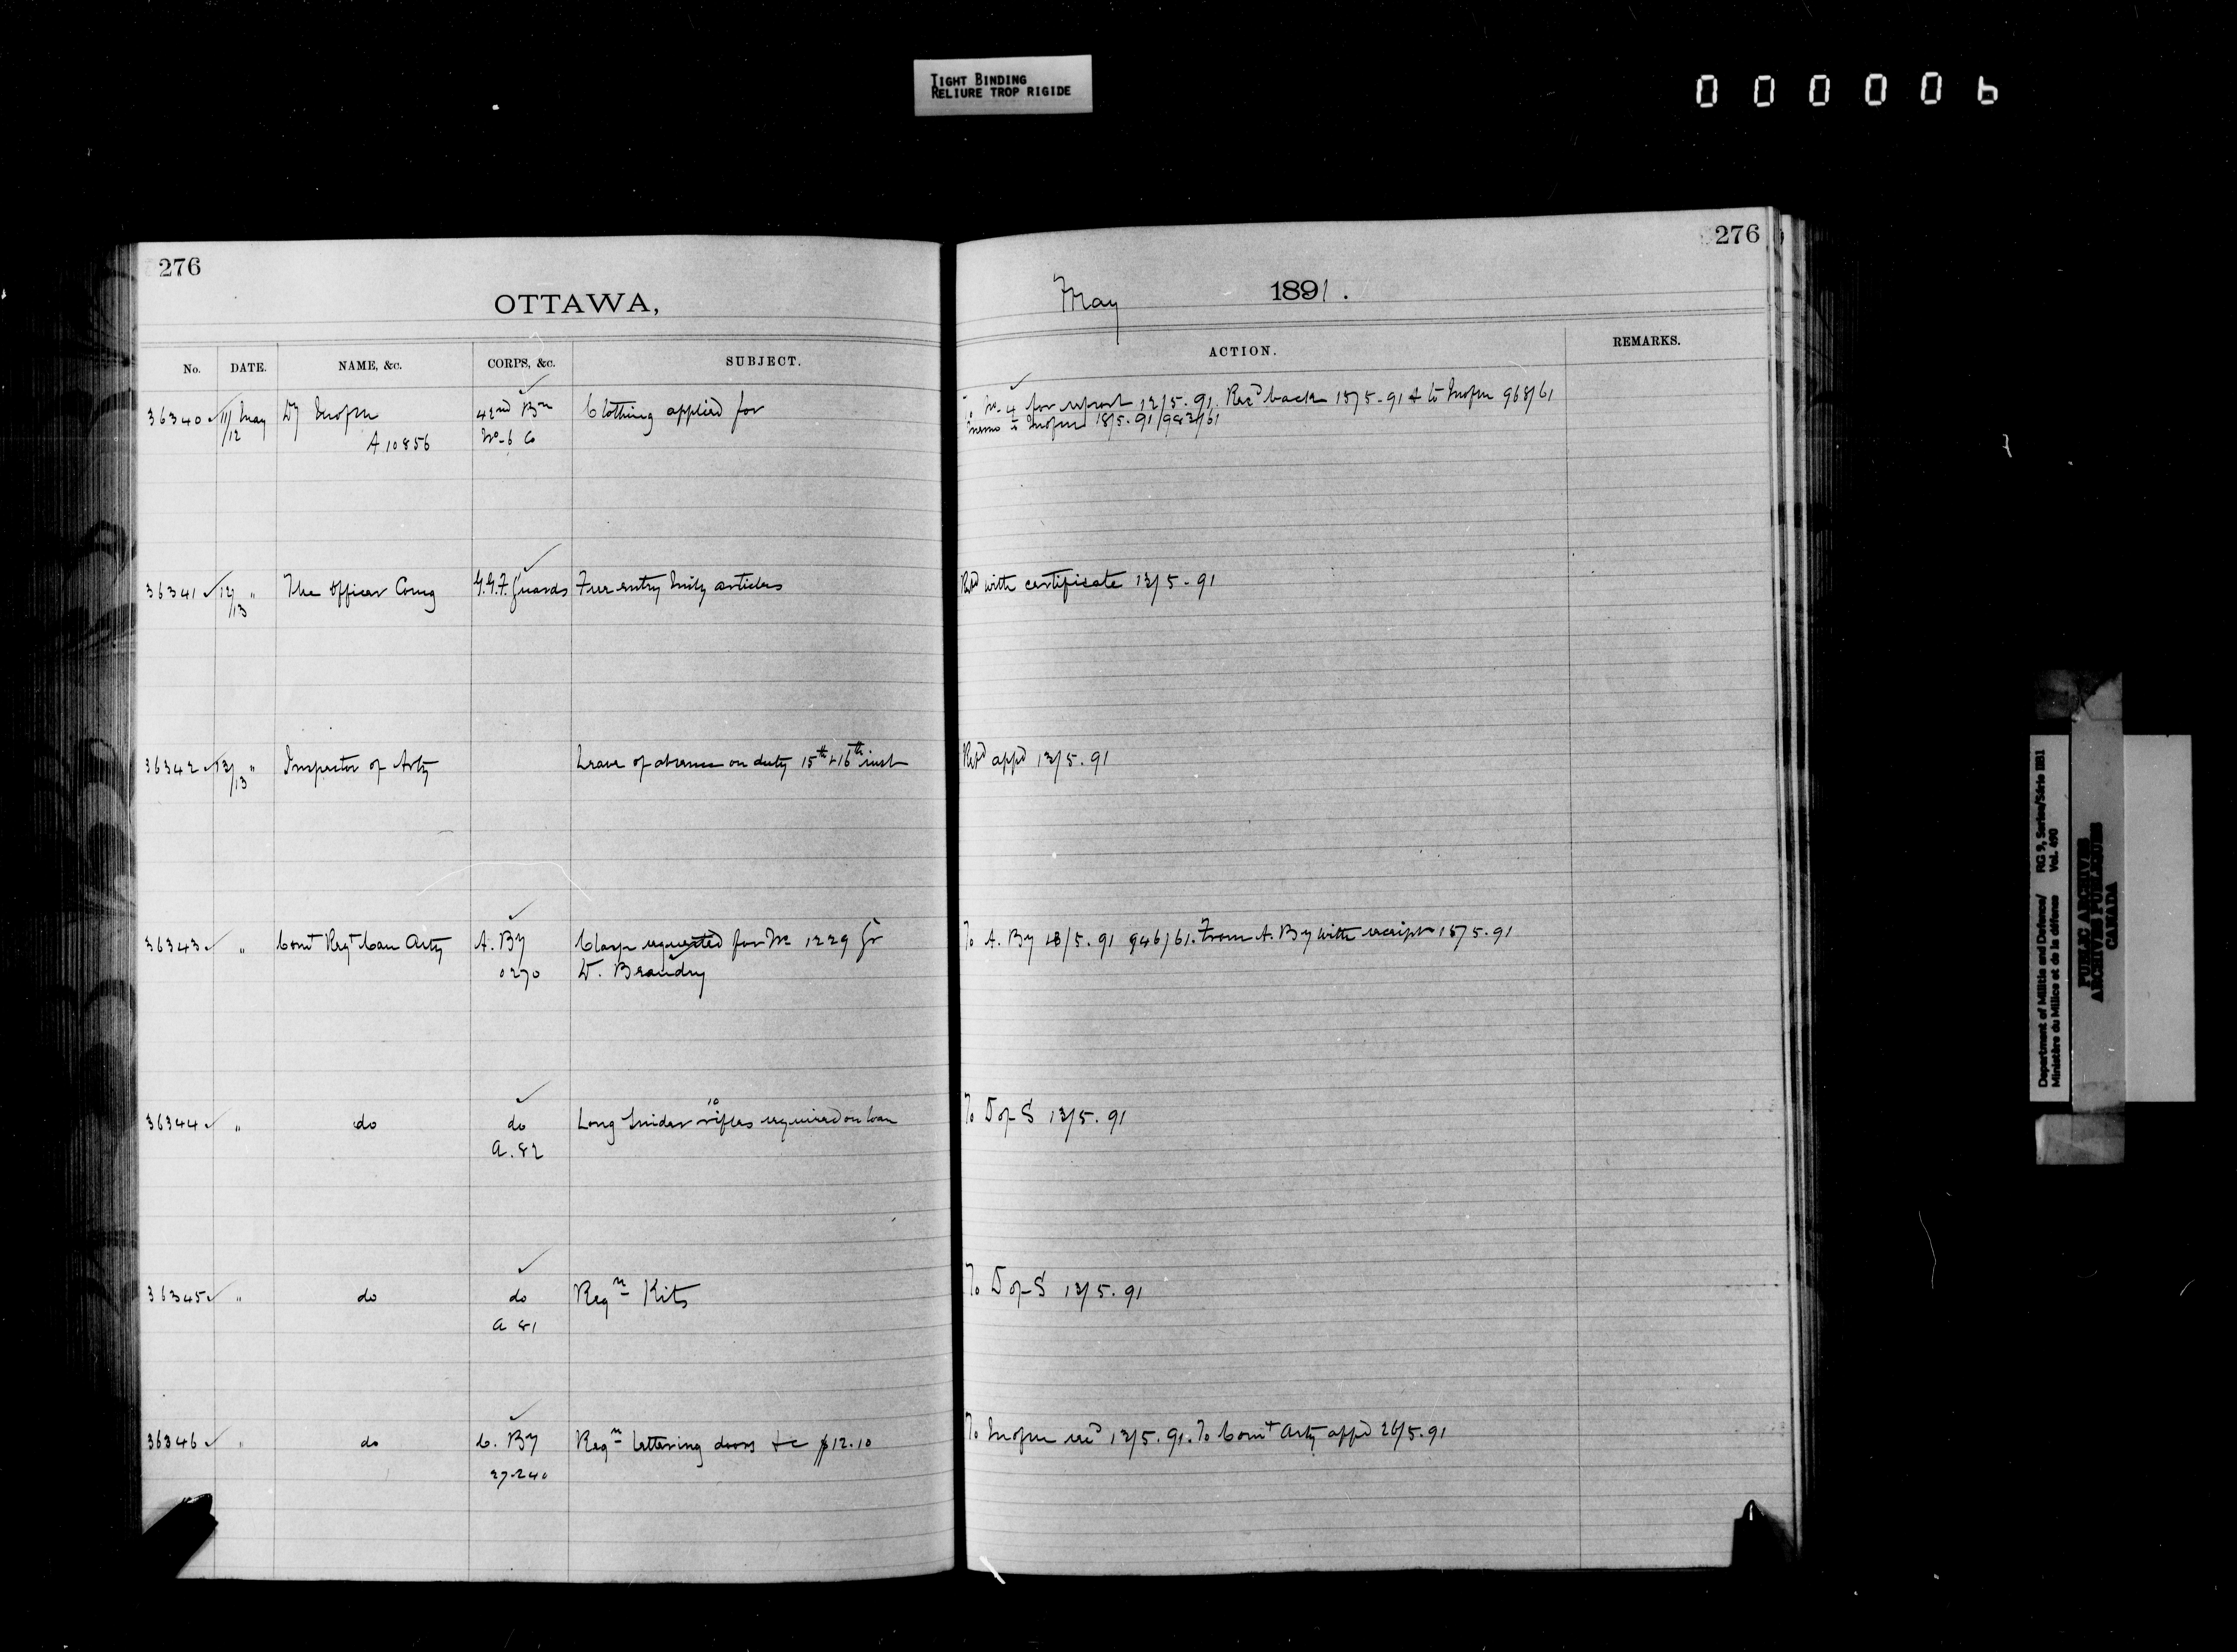 TIGHT BINDING
RELIURE TROP RIGIDE
000006
276
OTTAWA,
No. DATE. NAME, &c. CORPS, &c. SUBJECT.
36340 11/12 May Dy 42nd Bn Clothing applied for
A 10856 No. 6 Co
36341 12/13 " The Officer Comg G.G.F. Guards Free entry articles
36342 13/13 " Inspector of Arty Leave of absence on duty 15th & 16th inst
36343 " Comt Regt Can Arty A. By Clasp requested for No 1229 Gr
0270 W.
36344 " do do Long Snider 10 rifles required on loan
A. 82
36345 " do do Reqn Kits
A 81
36346 " do C. By Reqn lettering doors &c $12.10
27-240
276
May 1891.
ACTION. REMARKS.
To No. 4 for report 12/5.91. Recd back 15/5-91 & to 968/61
Memo to 18/5.91/982/61
Retd with certificate 13/5-91
Retd appd 13/5.91
To A. By 13/5.91 946/61. From A. By with receipt 15/5.91
To D of S 13/5.91
To D of S 13/5.91
To 13/5.91. To Comt Arty appd 26/5.91
Department of Militia and Defence/ RG 9, Series/Série IIB1
Ministère du Milice et de la défense Vol. 690
PUBLIC ARCHIVES
ARCHIVES PUBLIQUES
CANADA